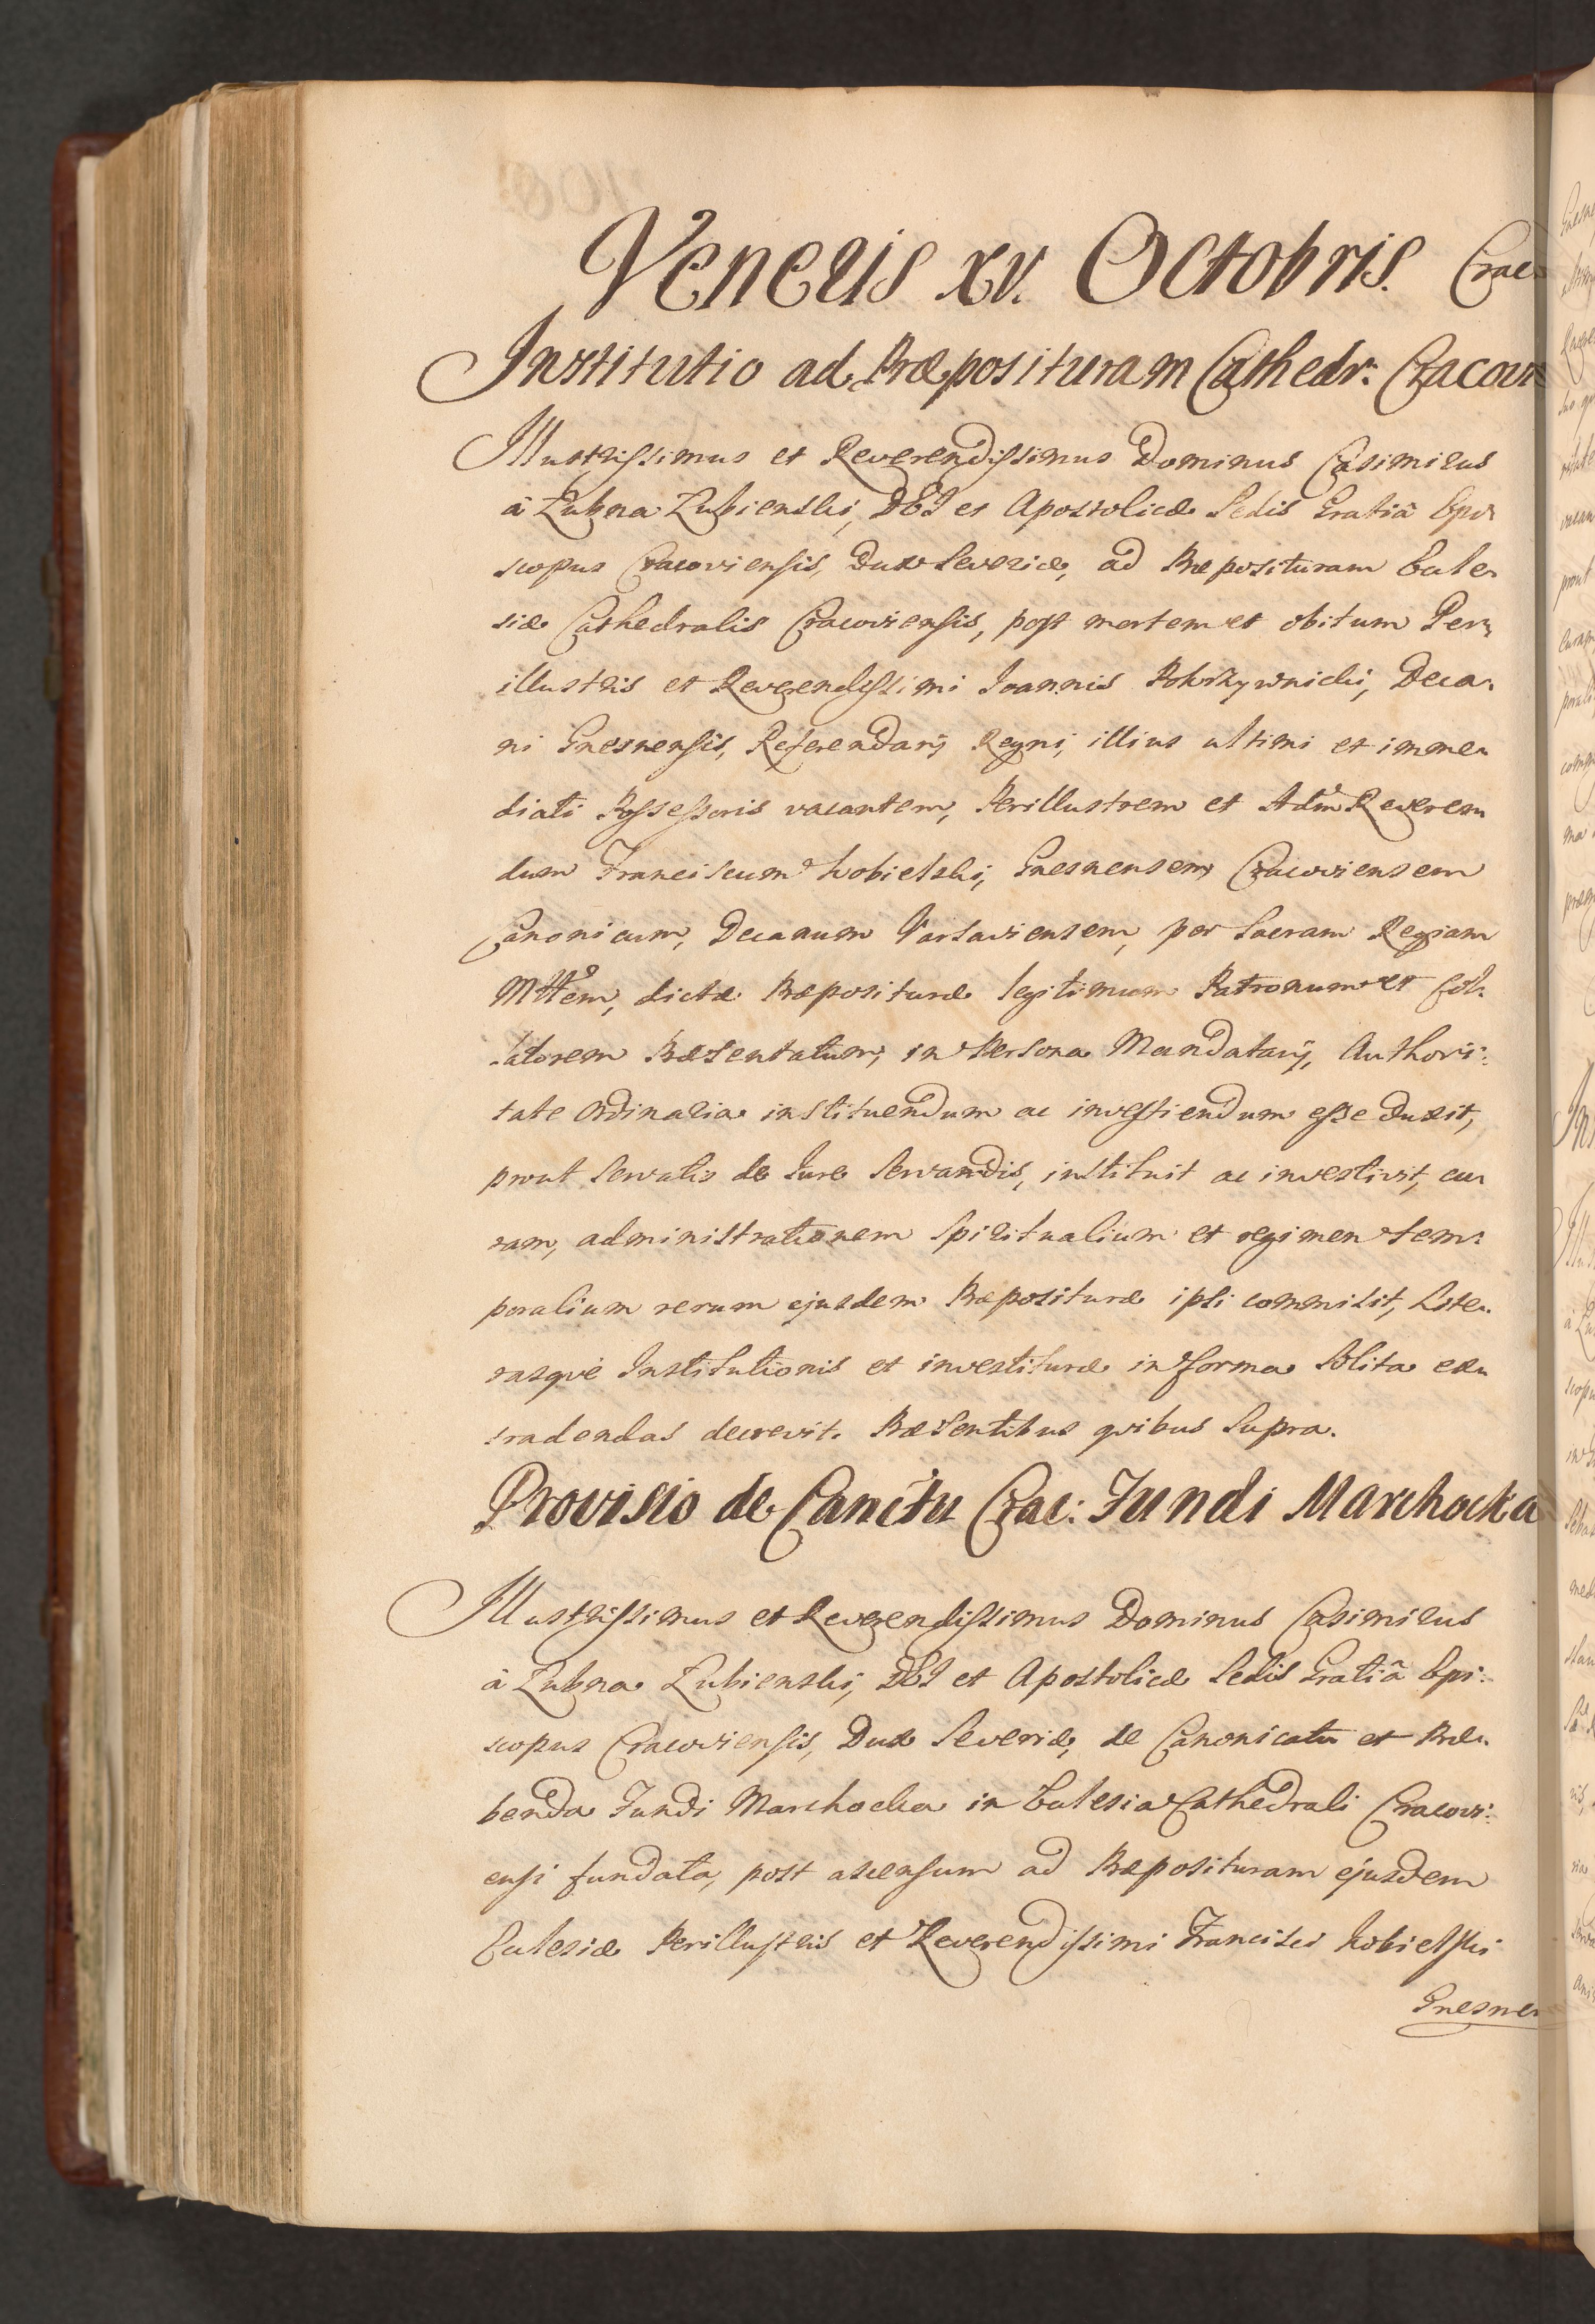 Veneris xv. Octobris. Crac
Institutio ad Præposituram Cathedr: Cracovi
Illustrissimus et Reverendissimus Dominus Casimirus
à Łubna Łubienski, DEI et Apostolicæ Sedis Gratiâ Epi-
scopus Cracoviensis, Dux Severiæ, ad Præposituram Eccle-
siæ Cathedralis Cracoviensis, post mortem et obitum Per-
illustris et Reverendissimi Joannis Pokrzywnicki, Deca-
ni Gnesnensis, Referendarij Regni, illius ultimi et imme-
diati Possessoris vacantem, Perillustrem et Adm Reveren
dum Franciscum Kobielski, Gnesnensem, Cracoviensem
Canonicum, Decanum Varsaviensem, per Sacram Regiam
Mttem, dictæ Præposituræ legitimum Patronum et Col-
latorem Præsentatum, in Persona Mandatarij, Authori-
tate Ordinaria instituendum ac investiendum esse duxit,
prout servatis de Jure servandis, instituit ac investivit, cu-
ram, administrationem Spiritualium et regimen tem-
poralium rerum ejusdem Præposituræ ipsi commisit, Lite-
rasquè Institutionis et investituræ in forma solita ex-
tradendas decrevit. Præsentibus quibus supra.
Provisio de Canctu Crac: Fundi Marchocka
Illustrissimus et Reverendissimus Dominus Casimirus
à Łubna Łubienski, DEI et Apostolicæ Sedis Gratiâ Epi-
scopus Cracoviensis, Dux Severiæ, de Canonicatu et Præ-
benda Fundi Marchocka in Ecclesia Cathedrali Cracovi-
ensi fundata, post ascensum ad Præposituram ejusdem
Ecclesiæ Perillustris et Reverendissimi Francisci Kobielski
Gnesne